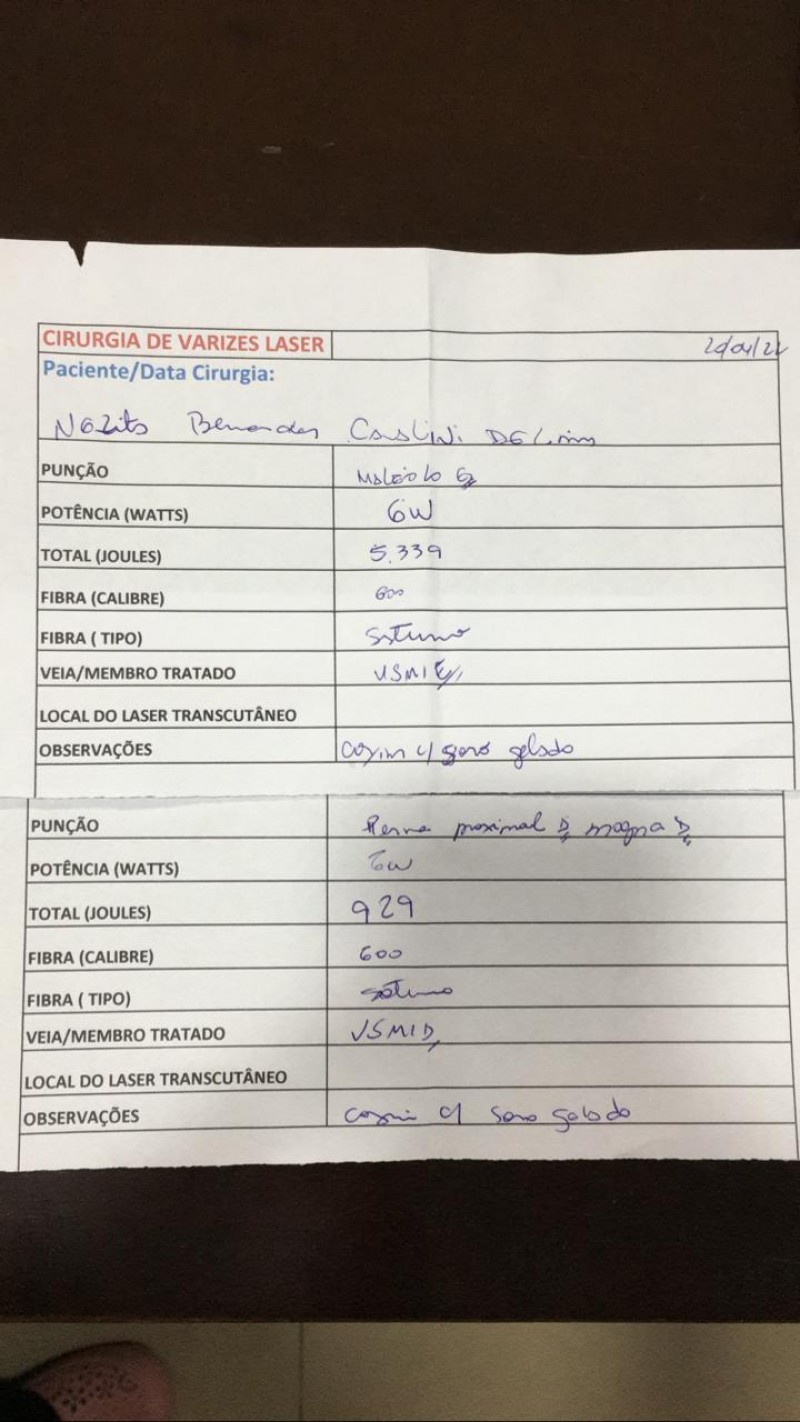 CIRURGIA DE VARIZES LASER
Paciente/Data Cirurgia:
PUNÇÃO
POTÊNCIA (WATTS) 6W
TOTAL (JOULES) 5.339
FIBRA (CALIBRE) 600
FIBRA ( TIPO)
VEIA/MEMBRO TRATADO VSMIE
LOCAL DO LASER TRANSCUTÂNEO
OBSERVAÇÕES coxim c/ soro gelado
PUNÇÃO Perna proximal D magna D
POTÊNCIA (WATTS) 6W
TOTAL (JOULES) 929
FIBRA (CALIBRE) 600
FIBRA ( TIPO)
VEIA/MEMBRO TRATADO VSMID
LOCAL DO LASER TRANSCUTÂNEO
OBSERVAÇÕES coxim c/ soro gelado